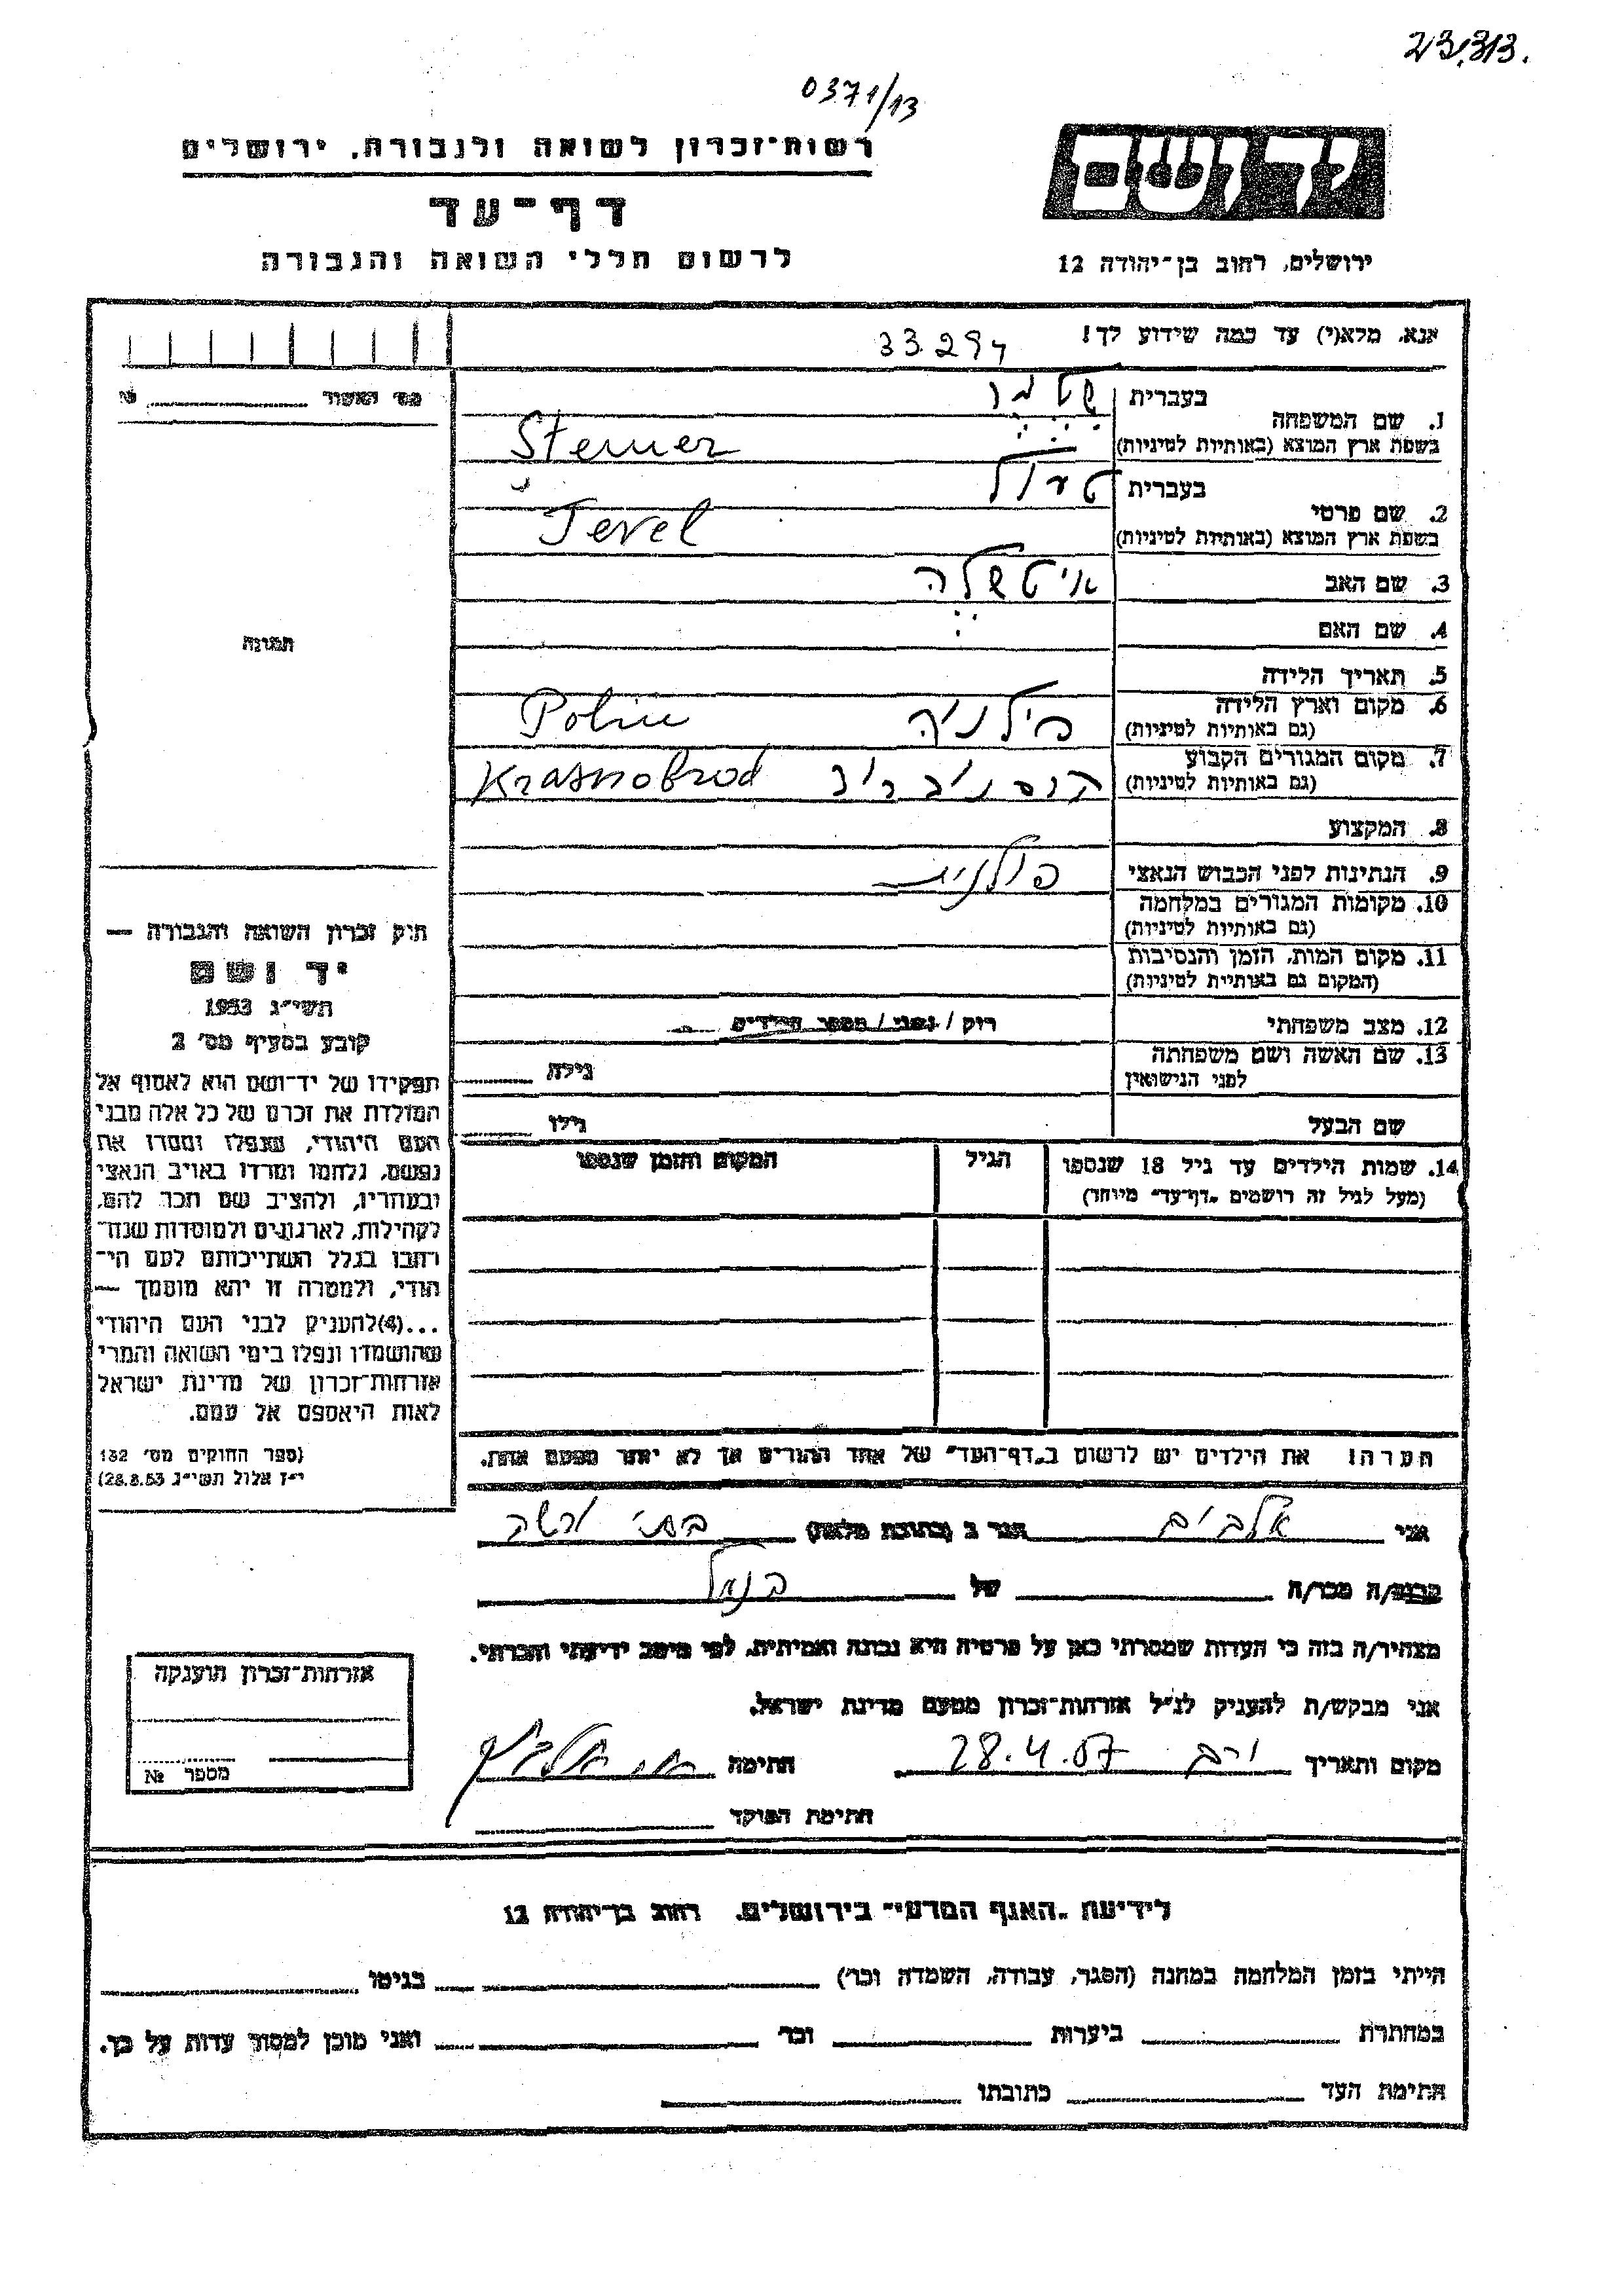 23.313.
0371/13
רשות־זכרון לשואה ולגבורה, ירושלים
דף־עד
לרשום חללי השואה והגבורה
יד ושם
ירושלים, רחוב בן־יהודה 12
אנא, מלא(י) עד כמה שידוע לך!
33.294
מס׳ האשור № 
תמונה
1. שם המשפחה
בעברית
בשפת ארץ המוצא (באותיות לטיניות)
2. שם פרטי
בעברית
בשפת ארץ המוצא (באותיות לטיניות) Tevel
3. שם האב איטשלה
4. שם האם
5. תאריך הלידה
6. מקום וארץ הלידה
(גם באותיות לטיניות)
7. מקום המגורים הקבוע Krasnobrod
(גם באותיות לטיניות)
8. המקצוע
9. הנתינות לפני הכבוש הנאצי פולנית
10. מקומות המגורים במלחמה
(גם באותיות לטיניות)
11. מקום המות, הזמן והנסיבות
(המקום גם באותיית לטיניות)
12. מצב משפחתי רוק / נשוי / מספר הילדים
13. שם האשה ושם משפחתה
לפני הנישואין גילה
שם הבעל גילו
14. שמות הילדים עד גיל 18 שנספו הגיל המקום והזמן שנספו
(מעל לגיל זה רושמים „דף־עד״ מיוחד)
חוק זכרון השואה והגבורה —
יד ושם
תשי״ג 1953
קובע בסעיף מס׳ 2
תפקידו של יד־ושם הוא לאסוף אל
המולדת את זכרם של כל אלה מבני
העם היהודי, שנפלו ומסרו את
נפשם, נלחמו ומרדו באויב הנאצי
ובעוזריו, ולהציב שם וזכר להם,
לקהילות, לארגונים ולמוסדות שנח־
רבו בגלל השתייכותם לעם הי־
הודי, ולמטרה זו יהא מוסמך —
...(4)להעניק לבני העם היהודי
שהושמדו ונפלו בימי השואה והמרי
אזרחות־זכרון של מדינת ישראל
לאות היאספם אל עמם.
(ספר החוקים מס׳ 132
י״ז אלול תשי״ג 28.8.53)
הערה! את הילדים יש לרשום ב„דף־העד״ של אחד ההורים אך לא יותר מפעם אחת.
אני הגר ב (כתובת מלאה)
קרוב/ה מכר/ה של
מצהיר/ה בזה כי העדות שמסרתי כאן על פרטיה היא נכונה ואמיתית, לפי מיטב ידיעתי והכרתי.
אני מבקש/ת להעניק לנ״ל אזרחות־זכרון מטעם מדינת ישראל.
מקום ותאריך 28.4.57 חתימה
חתימת הפוקד
אזרחות־זכרון הוענקה
מספר №
לידיעת „האגף המדעי״ בירושלים, רחוב בן־יהודה 12
הייתי בזמן המלחמה במחנה (הסגר, עבודה, השמדה וכו׳) בגיטו
במחתרת ביערות וכו׳ ואני מוכן למסור עדות על כך.
חתימת העד כתובתו